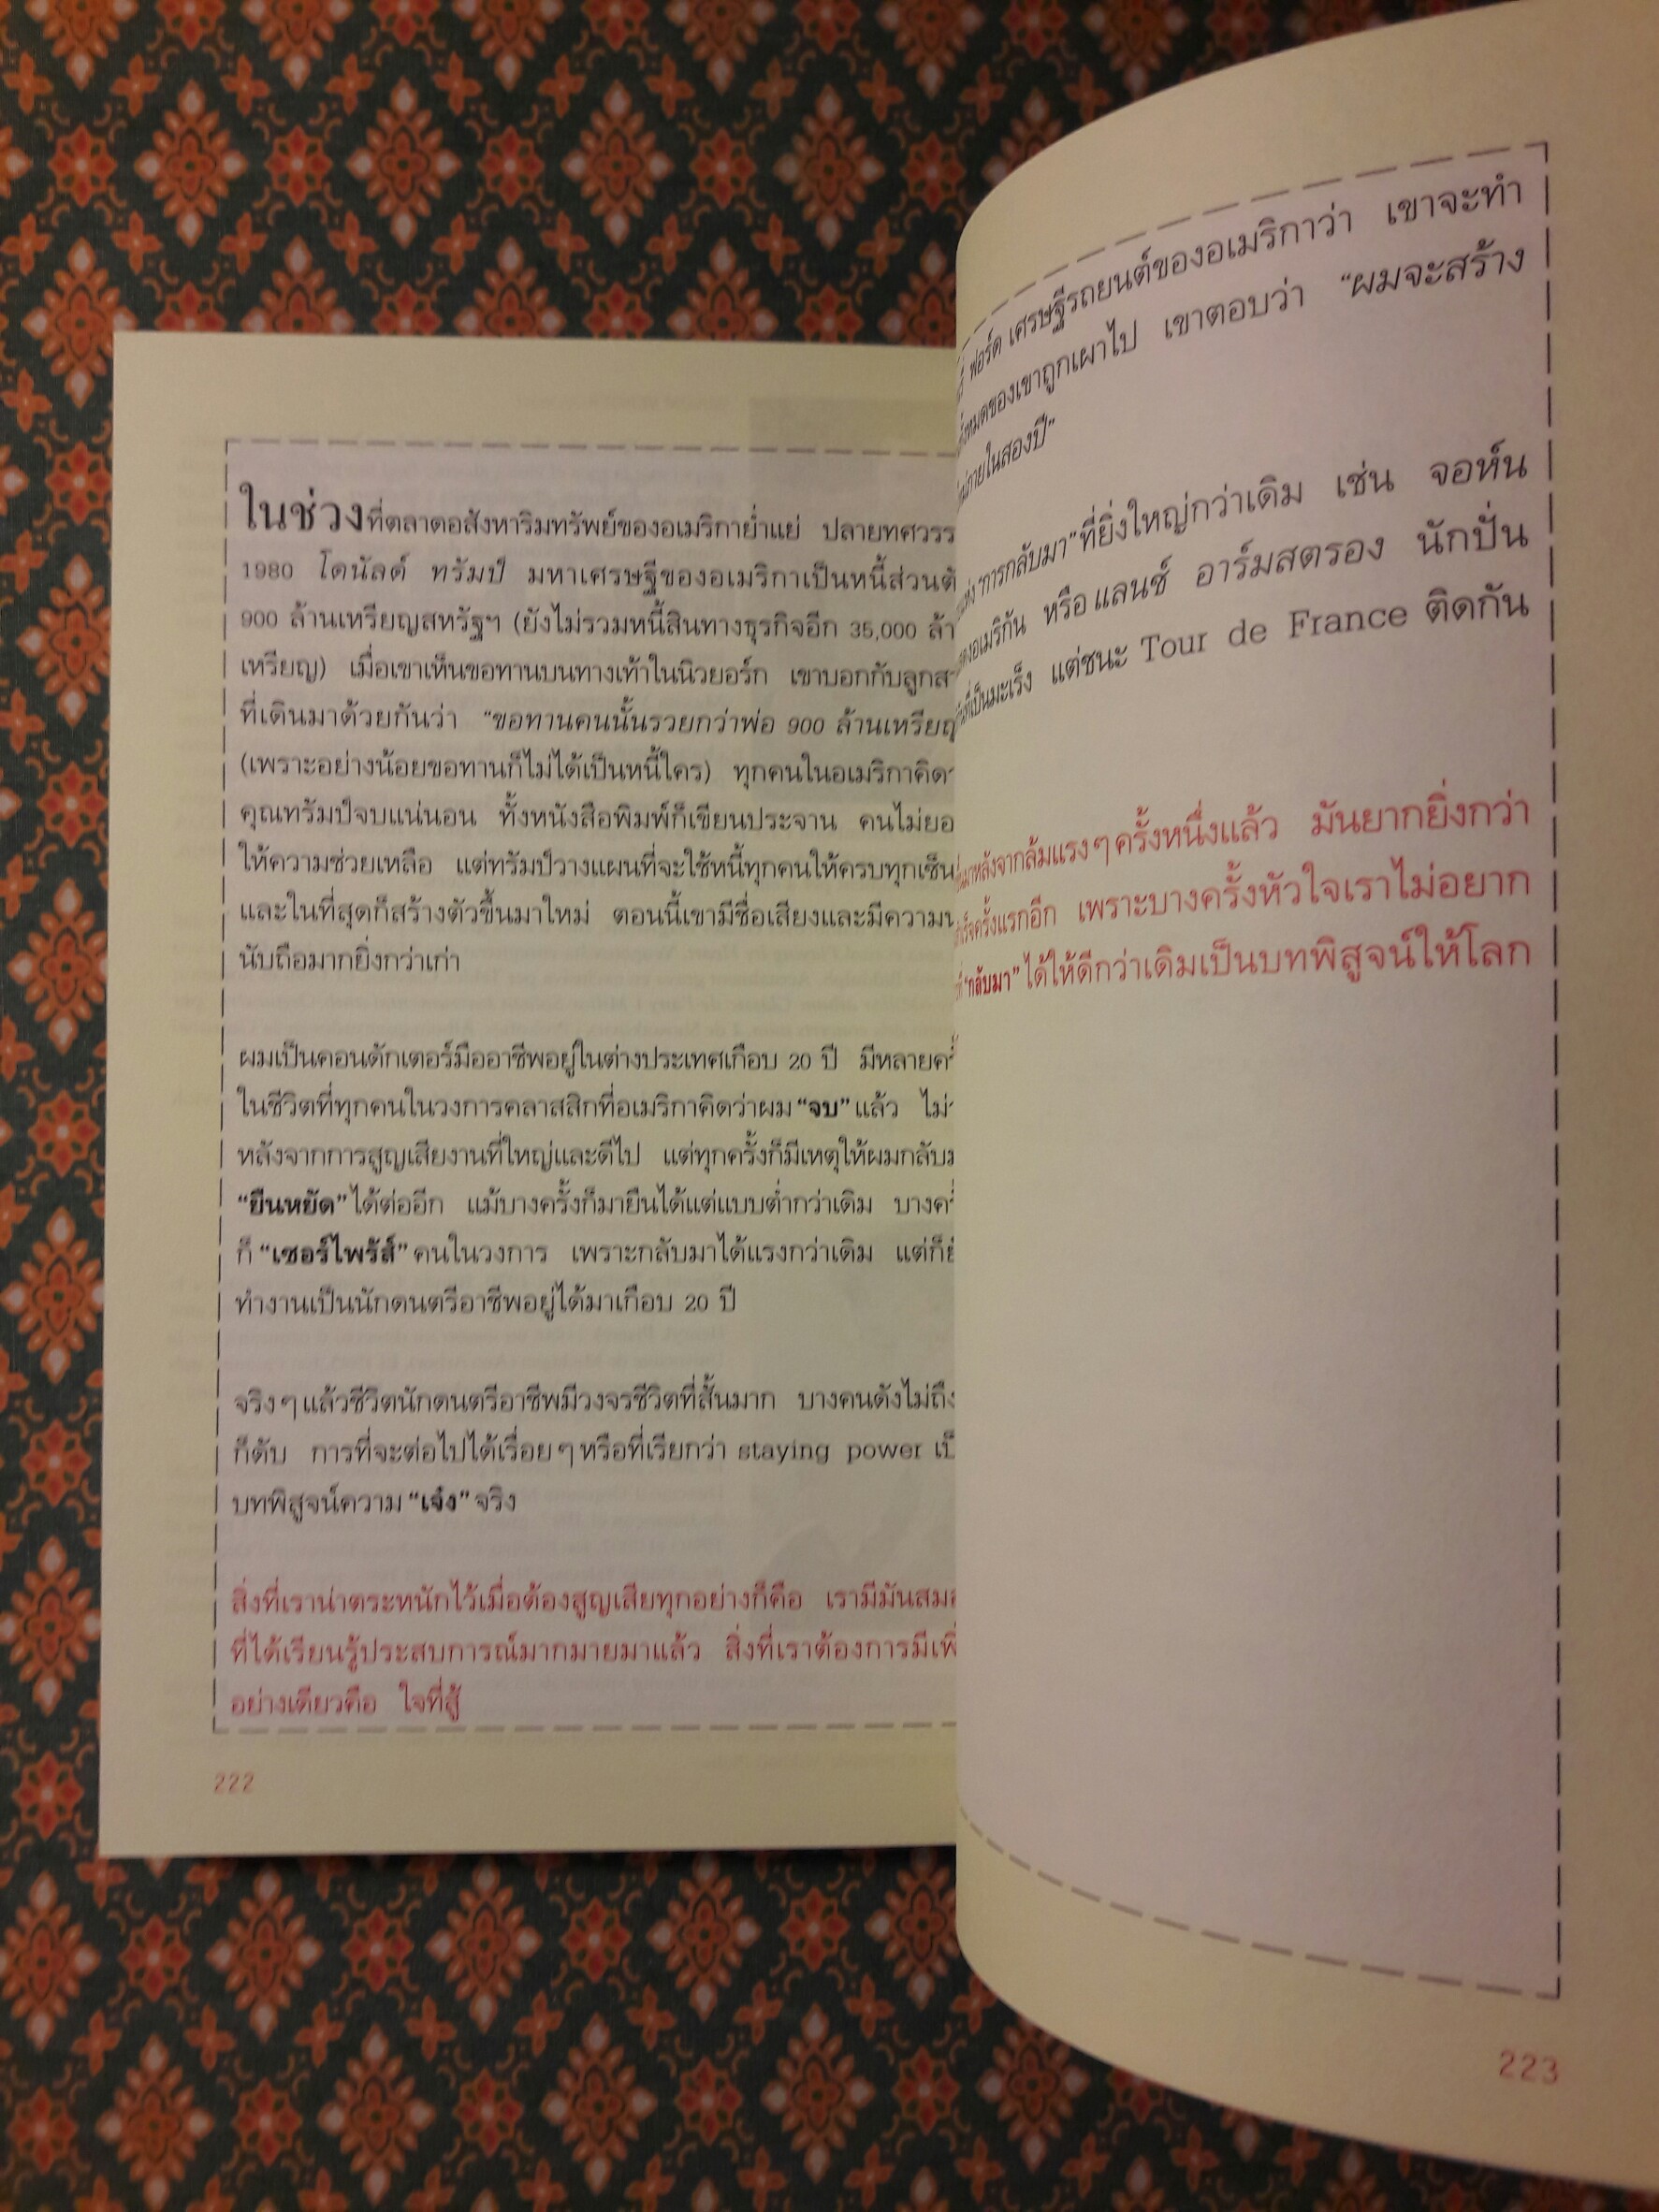 ในช่วงที่ตลาดอสังหาริมทรัพย์ของอเมริกาย่ำแย่ ปลายทศวรร
1980 โดนัลด์ ทรัมป์ มหาเศรษฐีของอเมริกาเป็นหนี้ส่วนตั
900 ล้านเหรียญสหรัฐฯ (ยังไม่รวมหนี้สินทางธุรกิจอีก 35,000 ล้า
เหรียญ) เมื่อเขาเห็นขอทานบนทางเท้าในนิวยอร์ก เขาบอกกับลูกส
ที่เดินมาด้วยกันว่า “ขอทานคนนั้นรวยกว่าพ่อ 900 ล้านเหรียญ
(เพราะอย่างน้อยขอทานก็ไม่ได้เป็นหนี้ใคร) ทุกคนในอเมริกาคิด
คุณทรัมป์จบแน่นอน ทั้งหนังสือพิมพ์ก็เขียนประจาน คนไม่ยอ
ให้ความช่วยเหลือ แต่ทรัมป์วางแผนที่จะใช้หนี้ทุกคนให้ครบทุกเซ็น
และในที่สุดก็สร้างตัวขึ้นมาใหม่ ตอนนี้เขามีชื่อเสียงและมีความน
นับถือมากยิ่งกว่าเก่า
ผมเป็นคอนดักเตอร์มืออาชีพอยู่ในต่างประเทศเกือบ 20 ปี มีหลายคร
ในชีวิตที่ทุกคนในวงการคลาสสิกที่อเมริกาคิดว่าผม “จบ” แล้ว ไม่
หลังจากการสูญเสียงานที่ใหญ่และดีไป แต่ทุกครั้งก็มีเหตุให้ผมกลับม
“ยืนหยัด” ได้ต่ออีก แม้บางครั้งก็มายืนได้แต่แบบต่ำกว่าเดิม บางคร
ก็ “เซอร์ไพรัส์” คนในวงการ เพราะกลับมาได้แรงกว่าเดิม แต่ก็ยั
ทำงานเป็นนักดนตรีอาชีพอยู่ได้มาเกือบ 20 ปี
จริงๆ แล้วชีวิตนักดนตรีอาชีพมีวงจรชีวิตที่สั้นมาก บางคนดังไม่ถึง
ก็ดับ การที่จะต่อไปได้เรื่อยๆ หรือที่เรียกว่า staying power เป็
บทพิสูจน์ความ “เจ๋ง” จริง
สิ่งที่เราน่าตระหนักไว้เมื่อต้องสูญเสียทุกอย่างก็คือ เรามีมันสมอ
ที่ได้เรียนรู้ประสบการณ์มากมายมาแล้ว สิ่งที่เราต้องการมีเพี
อย่างเดียวคือ ใจที่สู้
222
ฟอร์ด เศรษฐีรถยนต์ของอเมริกาว่า เขาจะทำ
ทั้งหมดของเขาถูกเผาไป เขาตอบว่า “ผมจะสร้าง
ภายในสองปี”
แห่ง “การกลับมา” ที่ยิ่งใหญ่กว่าเดิม เช่น จอห์น
อเมริกัน หรือ แลนซ์ อาร์มสตรอง นักปั่น
ที่เป็นมะเร็ง แต่ชนะ Tour de France ติดกัน
มาหลังจากล้มแรงๆ ครั้งหนึ่งแล้ว มันยากยิ่งกว่า
ครั้งแรกอีก เพราะบางครั้งหัวใจเราไม่อยาก
“กลับมา” ได้ให้ดีกว่าเดิมเป็นบทพิสูจน์ให้โลก
223